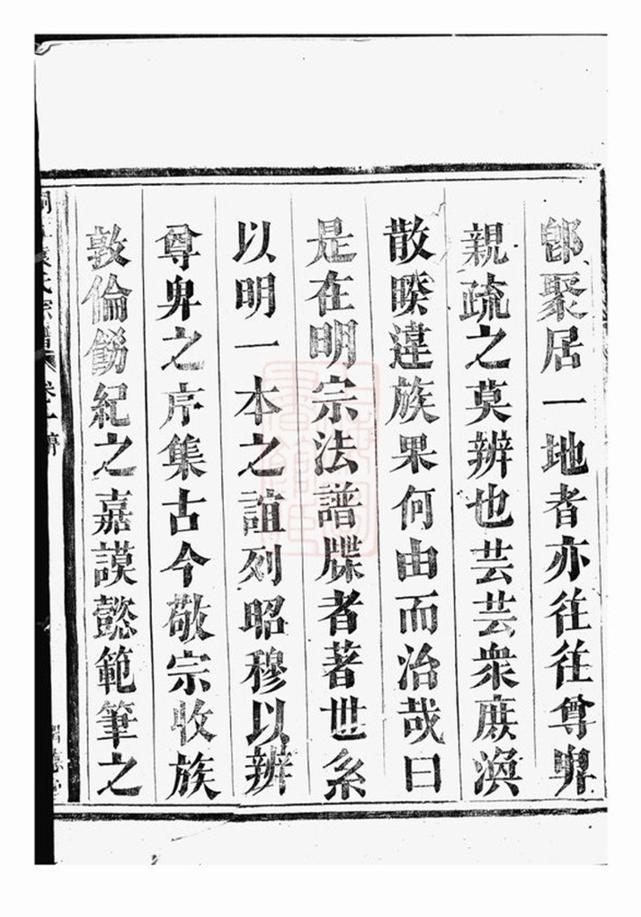 卽聚居一地者亦往往尊卑
親疏之莫辨也芸芸衆庶渙
散暌違族果何由而治哉曰
是在明宗法譜牒者著世系
以明一本之誼列昭穆以辨
尊卑之序集古今敬宗收族
敦倫飭紀之嘉謨懿範筆之
氏宗譜